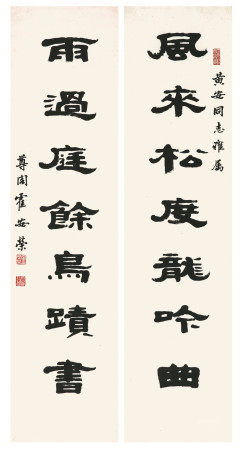 黄安同志雅属
風來松度龍吟曲
雨過庭餘鳥蹟書
尊周霍安榮